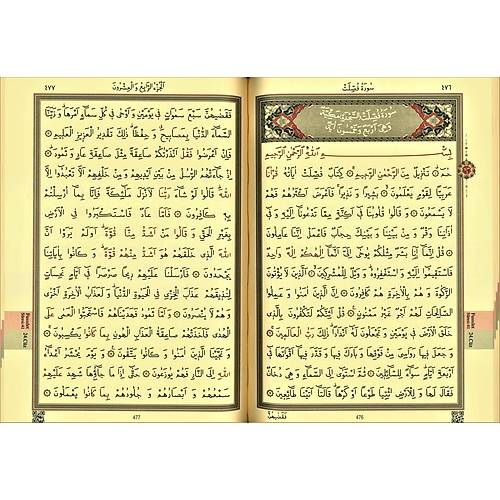 ٤٧٦
سُورَةُ فُصِّلَتْ
سُورَةُ فُصِّلَتْ السَّجْدَةِ مَكِّيَّةٌ
وَهِيَ اَرْبَعٌ وَخَمْسُونَ اٰيَةً
بِسْمِ اللّٰهِ الرَّحْمٰنِ الرَّحِيمِ
حٰمٓ ۝ تَنْزِيلٌ مِنَ الرَّحْمٰنِ الرَّحِيمِ ۝ كِتَابٌ فُصِّلَتْ اٰيَاتُهُ قُرْاٰنًا
عَرَبِيًّا لِقَوْمٍ يَعْلَمُونَ ۝ بَشِيرًا وَنَذِيرًا فَاَعْرَضَ اَكْثَرُهُمْ فَهُمْ
لَا يَسْمَعُونَ ۝ وَقَالُوا قُلُوبُنَا فِي اَكِنَّةٍ مِمَّا تَدْعُونَا اِلَيْهِ وَفِي
اٰذَانِنَا وَقْرٌ وَمِنْ بَيْنِنَا وَبَيْنِكَ حِجَابٌ فَاعْمَلْ اِنَّنَا عَامِلُونَ
۝ قُلْ اِنَّمَا اَنَا بَشَرٌ مِثْلُكُمْ يُوحٰى اِلَيَّ اَنَّمَا اِلٰهُكُمْ اِلٰهٌ وَاحِدٌ
فَاسْتَقِيمُوا اِلَيْهِ وَاسْتَغْفِرُوهُ وَوَيْلٌ لِلْمُشْرِكِينَ ۝ اَلَّذِينَ لَا يُؤْتُونَ
الزَّكٰوةَ وَهُمْ بِالْاٰخِرَةِ هُمْ كَافِرُونَ ۝ اِنَّ الَّذِينَ اٰمَنُوا وَعَمِلُوا
الصَّالِحَاتِ لَهُمْ اَجْرٌ غَيْرُ مَمْنُونٍ ۝ قُلْ اَئِنَّكُمْ لَتَكْفُرُونَ بِالَّذِي
خَلَقَ الْاَرْضَ فِي يَوْمَيْنِ وَتَجْعَلُونَ لَهُ اَنْدَادًا ذٰلِكَ رَبُّ الْعَالَمِينَ ۝
وَجَعَلَ فِيهَا رَوَاسِيَ مِنْ فَوْقِهَا وَبَارَكَ فِيهَا وَقَدَّرَ فِيهَا اَقْوَاتَهَا فِي
اَرْبَعَةِ اَيَّامٍ سَوَاءً لِلسَّائِلِينَ ۝ ثُمَّ اسْتَوٰى اِلَى السَّمَاءِ وَهِيَ دُخَانٌ
فَقَالَ لَهَا وَلِلْاَرْضِ ائْتِيَا طَوْعًا اَوْ كَرْهًا قَالَتَا اَتَيْنَا طَائِعِينَ ۝
فَقَضٰيهُنَّ
476
Fussilet
Suresi
24.Cüz
اَلْجُزْءُ الرَّابِعُ وَالْعِشْرُونَ
٤٧٧
فَقَضٰيهُنَّ سَبْعَ سَمٰوَاتٍ فِي يَوْمَيْنِ وَاَوْحٰى فِي كُلِّ سَمَاءٍ اَمْرَهَا وَزَيَّنَّا
السَّمَاءَ الدُّنْيَا بِمَصَابِيحَ وَحِفْظًا ذٰلِكَ تَقْدِيرُ الْعَزِيزِ الْعَلِيمِ ۝
فَاِنْ اَعْرَضُوا فَقُلْ اَنْذَرْتُكُمْ صَاعِقَةً مِثْلَ صَاعِقَةِ عَادٍ وَثَمُودَ ۝
اِذْ جَاءَتْهُمُ الرُّسُلُ مِنْ بَيْنِ اَيْدِيهِمْ وَمِنْ خَلْفِهِمْ اَلَّا تَعْبُدُوا اِلَّا
اللّٰهَ قَالُوا لَوْ شَاءَ رَبُّنَا لَاَنْزَلَ مَلٰئِكَةً فَاِنَّا بِمَا اُرْسِلْتُمْ
بِهِ كَافِرُونَ ۝ فَاَمَّا عَادٌ فَاسْتَكْبَرُوا فِي الْاَرْضِ
بِغَيْرِ الْحَقِّ وَقَالُوا مَنْ اَشَدُّ مِنَّا قُوَّةً اَوَلَمْ يَرَوْا اَنَّ
اللّٰهَ الَّذِي خَلَقَهُمْ هُوَ اَشَدُّ مِنْهُمْ قُوَّةً وَكَانُوا بِاٰيَاتِنَا
يَجْحَدُونَ ۝ فَاَرْسَلْنَا عَلَيْهِمْ رِيحًا صَرْصَرًا فِي اَيَّامٍ نَحِسَاتٍ
لِنُذِيقَهُمْ عَذَابَ الْخِزْيِ فِي الْحَيٰوةِ الدُّنْيَا وَلَعَذَابُ الْاٰخِرَةِ اَخْزٰى
وَهُمْ لَا يُنْصَرُونَ ۝ وَاَمَّا ثَمُودُ فَهَدَيْنَاهُمْ فَاسْتَحَبُّوا الْعَمٰى عَلَى
الْهُدٰى فَاَخَذَتْهُمْ صَاعِقَةُ الْعَذَابِ الْهُونِ بِمَا كَانُوا يَكْسِبُونَ ۝
وَنَجَّيْنَا الَّذِينَ اٰمَنُوا وَكَانُوا يَتَّقُونَ ۝ وَيَوْمَ يُحْشَرُ اَعْدَاءُ
اللّٰهِ اِلَى النَّارِ فَهُمْ يُوزَعُونَ ۝ حَتّٰى اِذَا مَا جَاؤُهَا شَهِدَ عَلَيْهِمْ
سَمْعُهُمْ وَاَبْصَارُهُمْ وَجُلُودُهُمْ بِمَا كَانُوا يَعْمَلُونَ ۝
477
Fussilet
Suresi
24.Cüz